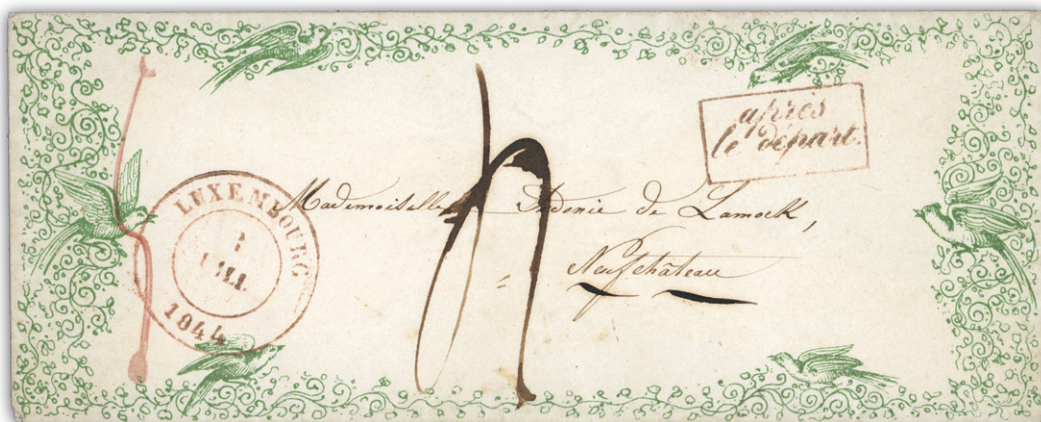 après
le départ.
LUXEMBOURG
1844
Mademoiselle de Lamock,
Neufchâteau